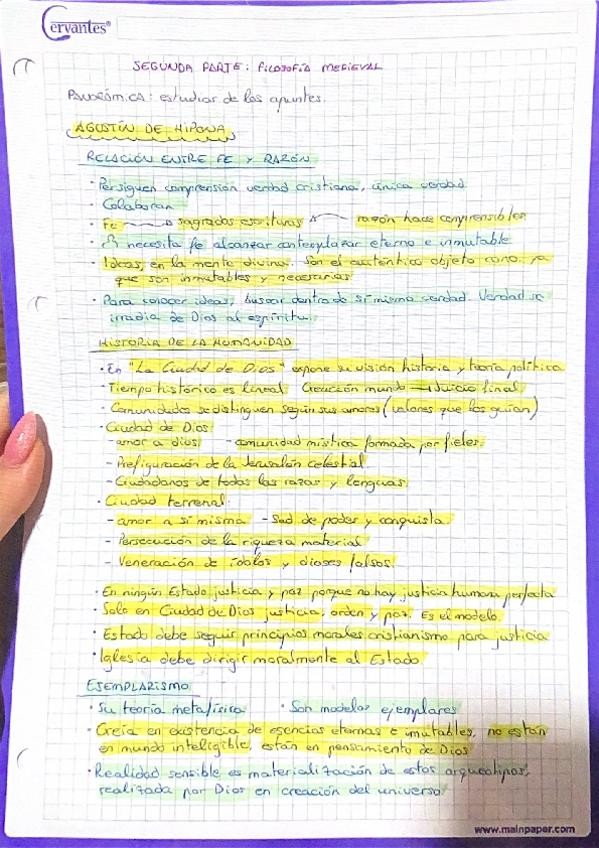 Cervantes®
SEGUNDA PARTE: FILOSOFÍA MEDIEVAL
PANORÁMICA: estudiar de los apuntes.
AGUSTÍN DE HIPONA
RELACIÓN ENTRE FE Y RAZÓN
· Persiguen comprensión verdad cristiana, única verdad
· Colaboran
· Fe → sagradas escrituras razón hace comprensibles
· necesita fe alcanzar contemplar eterno e inmutable
· Ideas, en la mente divina. Son el auténtico objeto cono. ya
que son inmutables y necesarias
· Para conocer ideas, buscar dentro de sí mismo verdad. Verdad se
irradia de Dios al espíritu.
HISTORIA DE LA HUMANIDAD
· En "La Ciudad de Dios" expone su visión historia y teoría política
· Tiempo histórico es lineal. Creación mundo → Juicio final
· Comunidades se distinguen según sus amores (valores que los guían)
· Ciudad de Dios:
- amor a dios - comunidad mística formada por fieles.
- Prefiguración de la Jerusalén celestial.
- Ciudadanos de todas las razas y lenguas
· Ciudad terrenal:
- amor a sí misma - Sed de poder y conquista
- Persecución de la riqueza material
- Veneración de ídolos y dioses falsos.
· En ningún Estado justicia y paz porque no hay justicia humana perfecta
· Solo en Ciudad de Dios justicia, orden y paz. Es el modelo
· Estado debe seguir principios morales cristianismo para justicia
· Iglesia debe dirigir moralmente al Estado
EJEMPLARISMO
· Su teoría metafísica · Son modelos ejemplares
· Creía en existencia de esencias eternas e imutables, no están
en mundo inteligible, están en pensamiento de Dios
· Realidad sensible es materialización de estos arquetipos,
realizada por Dios en creación del universo
www.mainpaper.com